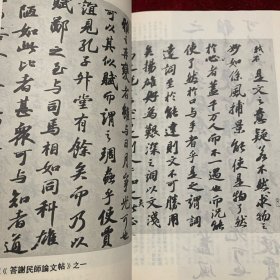 是文之意疑若不然求物之
妙如係風捕景能使是物了然
於心者蓋千萬人而不一遇也而況能
使了然於口與手者乎是之謂詞
達詞至於能達則文不可勝用
矣揚雄好為艱深之詞以文淺
與日月爭光可也
可以其似賦而謂之雕蟲乎使賈
誼見孔子升堂有餘矣而乃以
賦鄙之至與司馬相如同科雄之
陋如此比者甚衆可與知者道
《答謝民師論文帖》之一